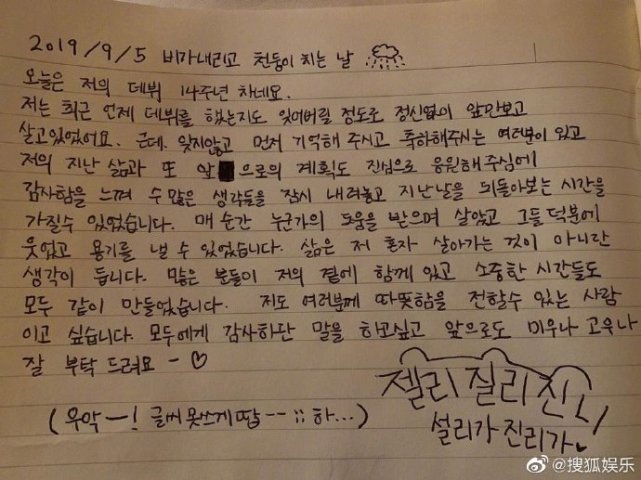 2019/9/5 비가내리고 천둥이 치는 날
오늘은 저의 데뷔 14주년 차네요.
저는 최근 언제 데뷔를 했는지도 잊어버릴 정도로 정신없이 앞만보고
살고있었어요. 근데, 잊지않고 먼저 기억해 주시고 축하해주시는 여러분이 있고
저의 지난 삶과 또 앞으로의 계획도 진심으로 응원해주심에
감사함을 느껴 수 많은 생각들을 잠시 내려놓고 지난날을 뒤돌아보는 시간을
가질수 있었습니다. 매 순간 누군가의 도움을 받으며 살았고 그들 덕분에
웃었고 용기를 낼 수 있었습니다. 삶은 저 혼자 살아가는 것이 아니란
생각이 듭니다. 많은 분들이 저의 곁에 함께 있고 소중한 시간들도
모두 같이 만들었습니다. 저도 여러분께 따뜻함을 전할수 있는 사람
이고 싶습니다. 모두에게 감사하단 말을 하고싶고 앞으로도 미우나 고우나
잘 부탁 드려요 ~ ♡
젤리 질리 진
설리가 진리가
(우악ㅡ! 글씨 못쓰게땁 -- ;; 하...)
@搜狐娱乐